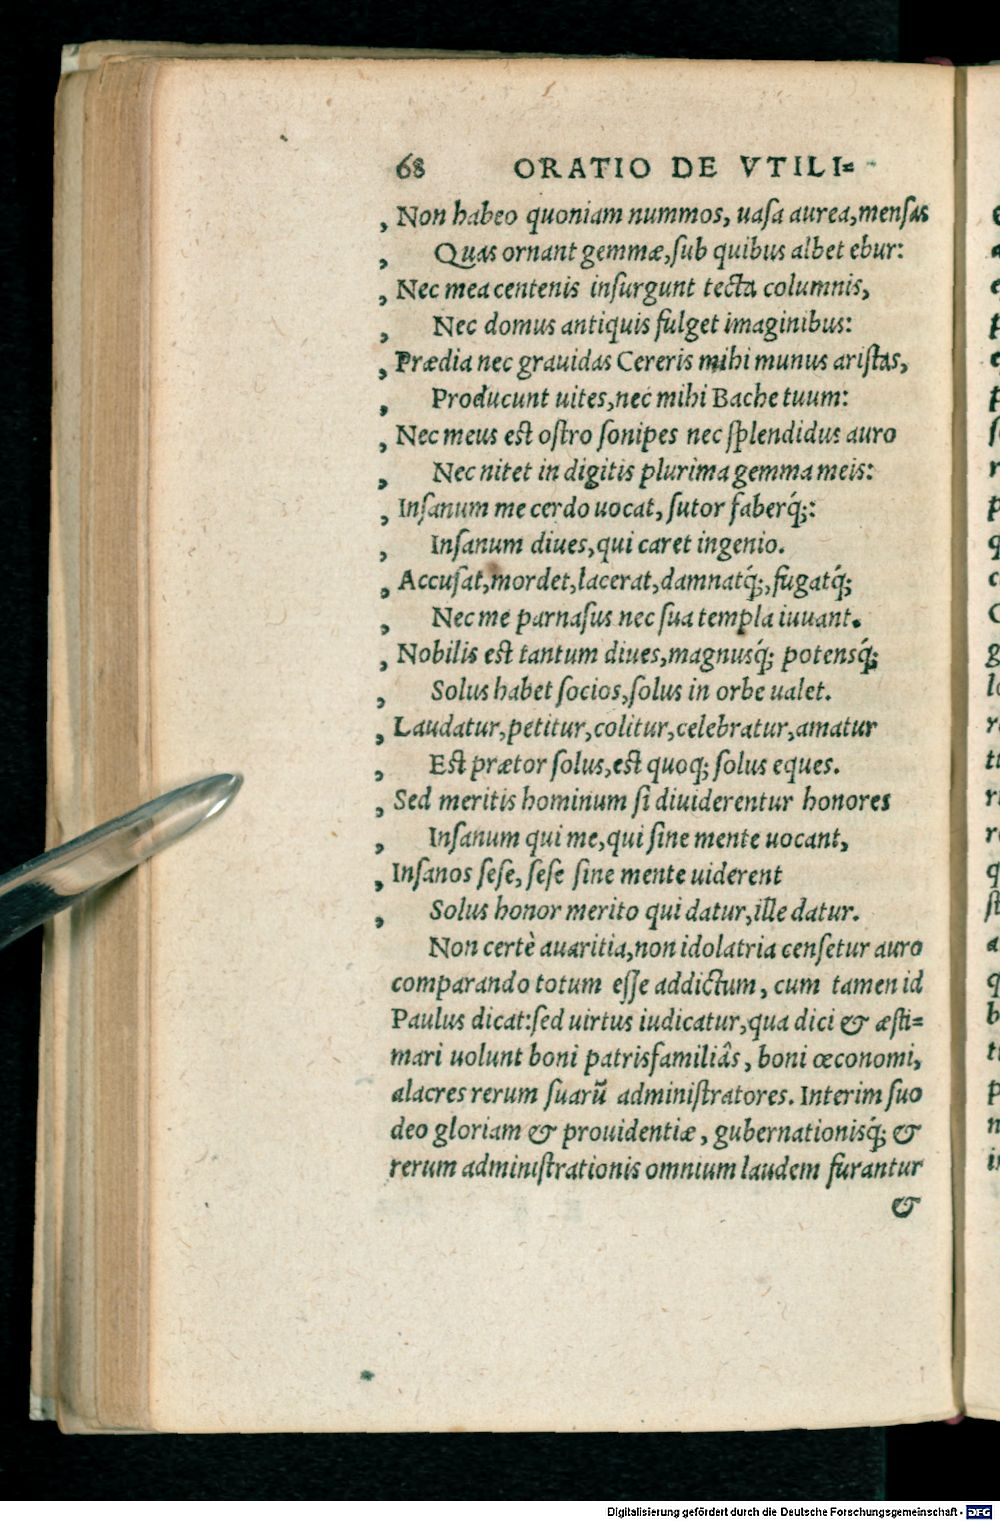 68 ORATIO DE VTILI=
, Non habeo quoniam nummos, uaſa aurea, menſas
, Quas ornant gemmæ, ſub quibus albet ebur:
, Nec mea centenis inſurgunt tecta columnis,
, Nec domus antiquis fulget imaginibus:
, Prædia nec grauidas Cereris mihi munus ariſtas,
, Producunt uites, nec mihi Bache tuum:
, Nec meus eſt oſtro ſonipes nec ſplendidus auro
, Nec nitet in digitis plurima gemma meis:
, Inſanum me cerdo uocat, ſutor faberq́;:
, Inſanum diues, qui caret ingenio.
, Accuſat, mordet, lacerat, damnatq́;, fugatq́;
, Nec me parnaſus nec ſua templa iuuant.
, Nobilis eſt tantum diues, magnusq́; potensq́;
, Solus habet ſocios, ſolus in orbe ualet.
, Laudatur, petitur, colitur, celebratur, amatur
, Eſt prætor ſolus, eſt quoq; ſolus eques.
, Sed meritis hominum ſi diuiderentur honores
, Inſanum qui me, qui ſine mente uocant,
, Inſanos ſeſe, ſeſe ſine mente uiderent
, Solus honor merito qui datur, ille datur.
Non certè auaritia, non idolatria cenſetur auro
comparando totum eſſe addictum, cum tamen id
Paulus dicat: ſed uirtus iudicatur, qua dici & æſti=
mari uolunt boni patrisfamiliâs, boni œconomi,
alacres rerum ſuarū adminiſtratores. Interim ſuo
deo gloriam & prouidentiæ, gubernationisq́; &
rerum adminiſtrationis omnium laudem furantur
&
Digitalisierung gefördert durch die Deutsche Forschungsgemeinschaft - DFG